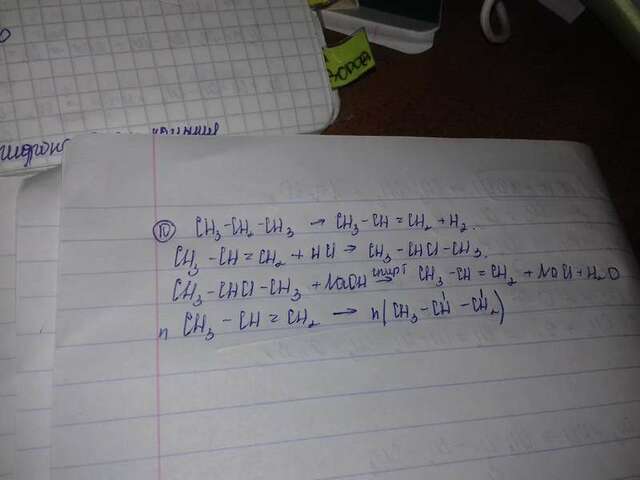 IV CH₃-CH₂-CH₃ → CH₃-CH=CH₂+H₂.
CH₃-CH=CH₂+HCl → CH₃-CHCl-CH₃.
CH₃-CHCl-CH₃ + NaOH спирт→ CH₃-CH=CH₂ + NaCl + H₂O
n CH₃-CH=CH₂ → n(CH₃-CH-CH₂)